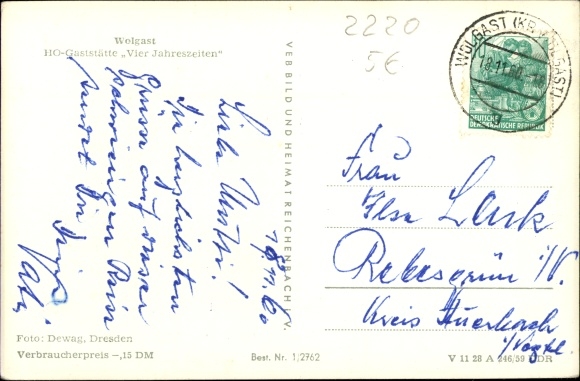 Wolgast
HO-Gaststätte „Vier Jahreszeiten"
2220
5€
WOLGAST (KR WOLGAST)
18.11.60
DEUTSCHE
DEMOKRATISCHE REPUBLIK
VEB BILD UND HEIMAT REICHENBACH I. V.
18.11.60
Liebe Mutti!
Die herzlichsten
Grüsse auf dieser
schwierigen Reise
sendet Dir Dein
Vati
Frau
Ilse Lark
Rebesgrün i/V.
Kreis Auerbach
i/Vogtl.
Foto: Dewag, Dresden
Verbraucherpreis -,15 DM
Best. Nr. 1/2762
V 11 28 A 246/59 DDR